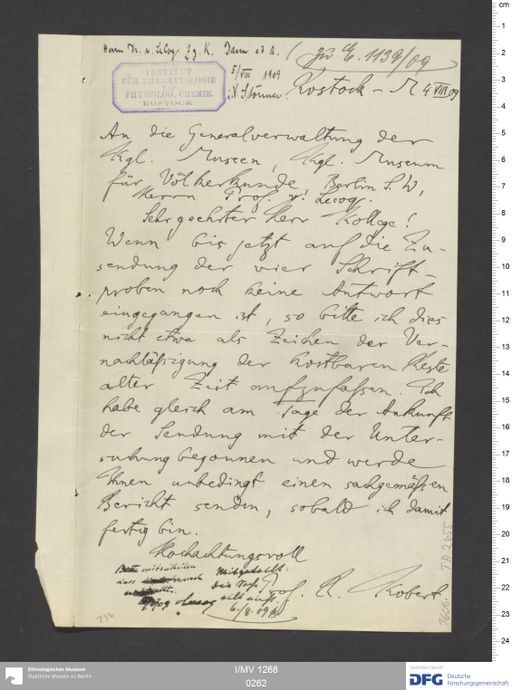 Herrn Dr. v. Lecoq z. g. K. Dann ad A.
zu E. 1139/09
5/VIII 1909
INSTITUT
FÜR PHARMAKOLOGIE
UND
PHYSIOLOG. CHEMIE.
ROSTOCK.
Rostock-M 4 VIII 09
An die Generalverwaltung der
Kgl. Museen, Kgl. Museum
für Völkerkunde, Berlin S. W,
Herrn Prof. v. Lecoq.
Sehr geehrter Herr Kollege!
Wenn bis jetzt auf die Zu-
sendung der vier Schrift-
proben noch keine Antwort
eingegangen ist, so bitte ich dies
nicht etwa als Zeichen der Ver-
nachläßigung der kostbaren Reste
alter Zeit aufzufassen. Ich
habe gleich am Tage der Ankunft
der Sendung mit der Unter-
suchung begonnen und werde
Ihnen unbedingt einen sachgemäßen
Bericht senden, sobald ich damit
fertig bin.
Hochachtungsvoll
Prof. R. Kobert
Bitte mitzuteilen
dass
Mitgeteilt:
die
eilt
6/8.09
TA 2655
I/MV 1268
0262
Ethnologisches Museum
Staatliche Museen zu Berlin
Gefördert durch
DFG Deutsche
Forschungsgemeinschaft
cm
1
2
3
4
5
6
7
8
9
10
11
12
13
14
15
16
17
18
19
20
21
22
23
24